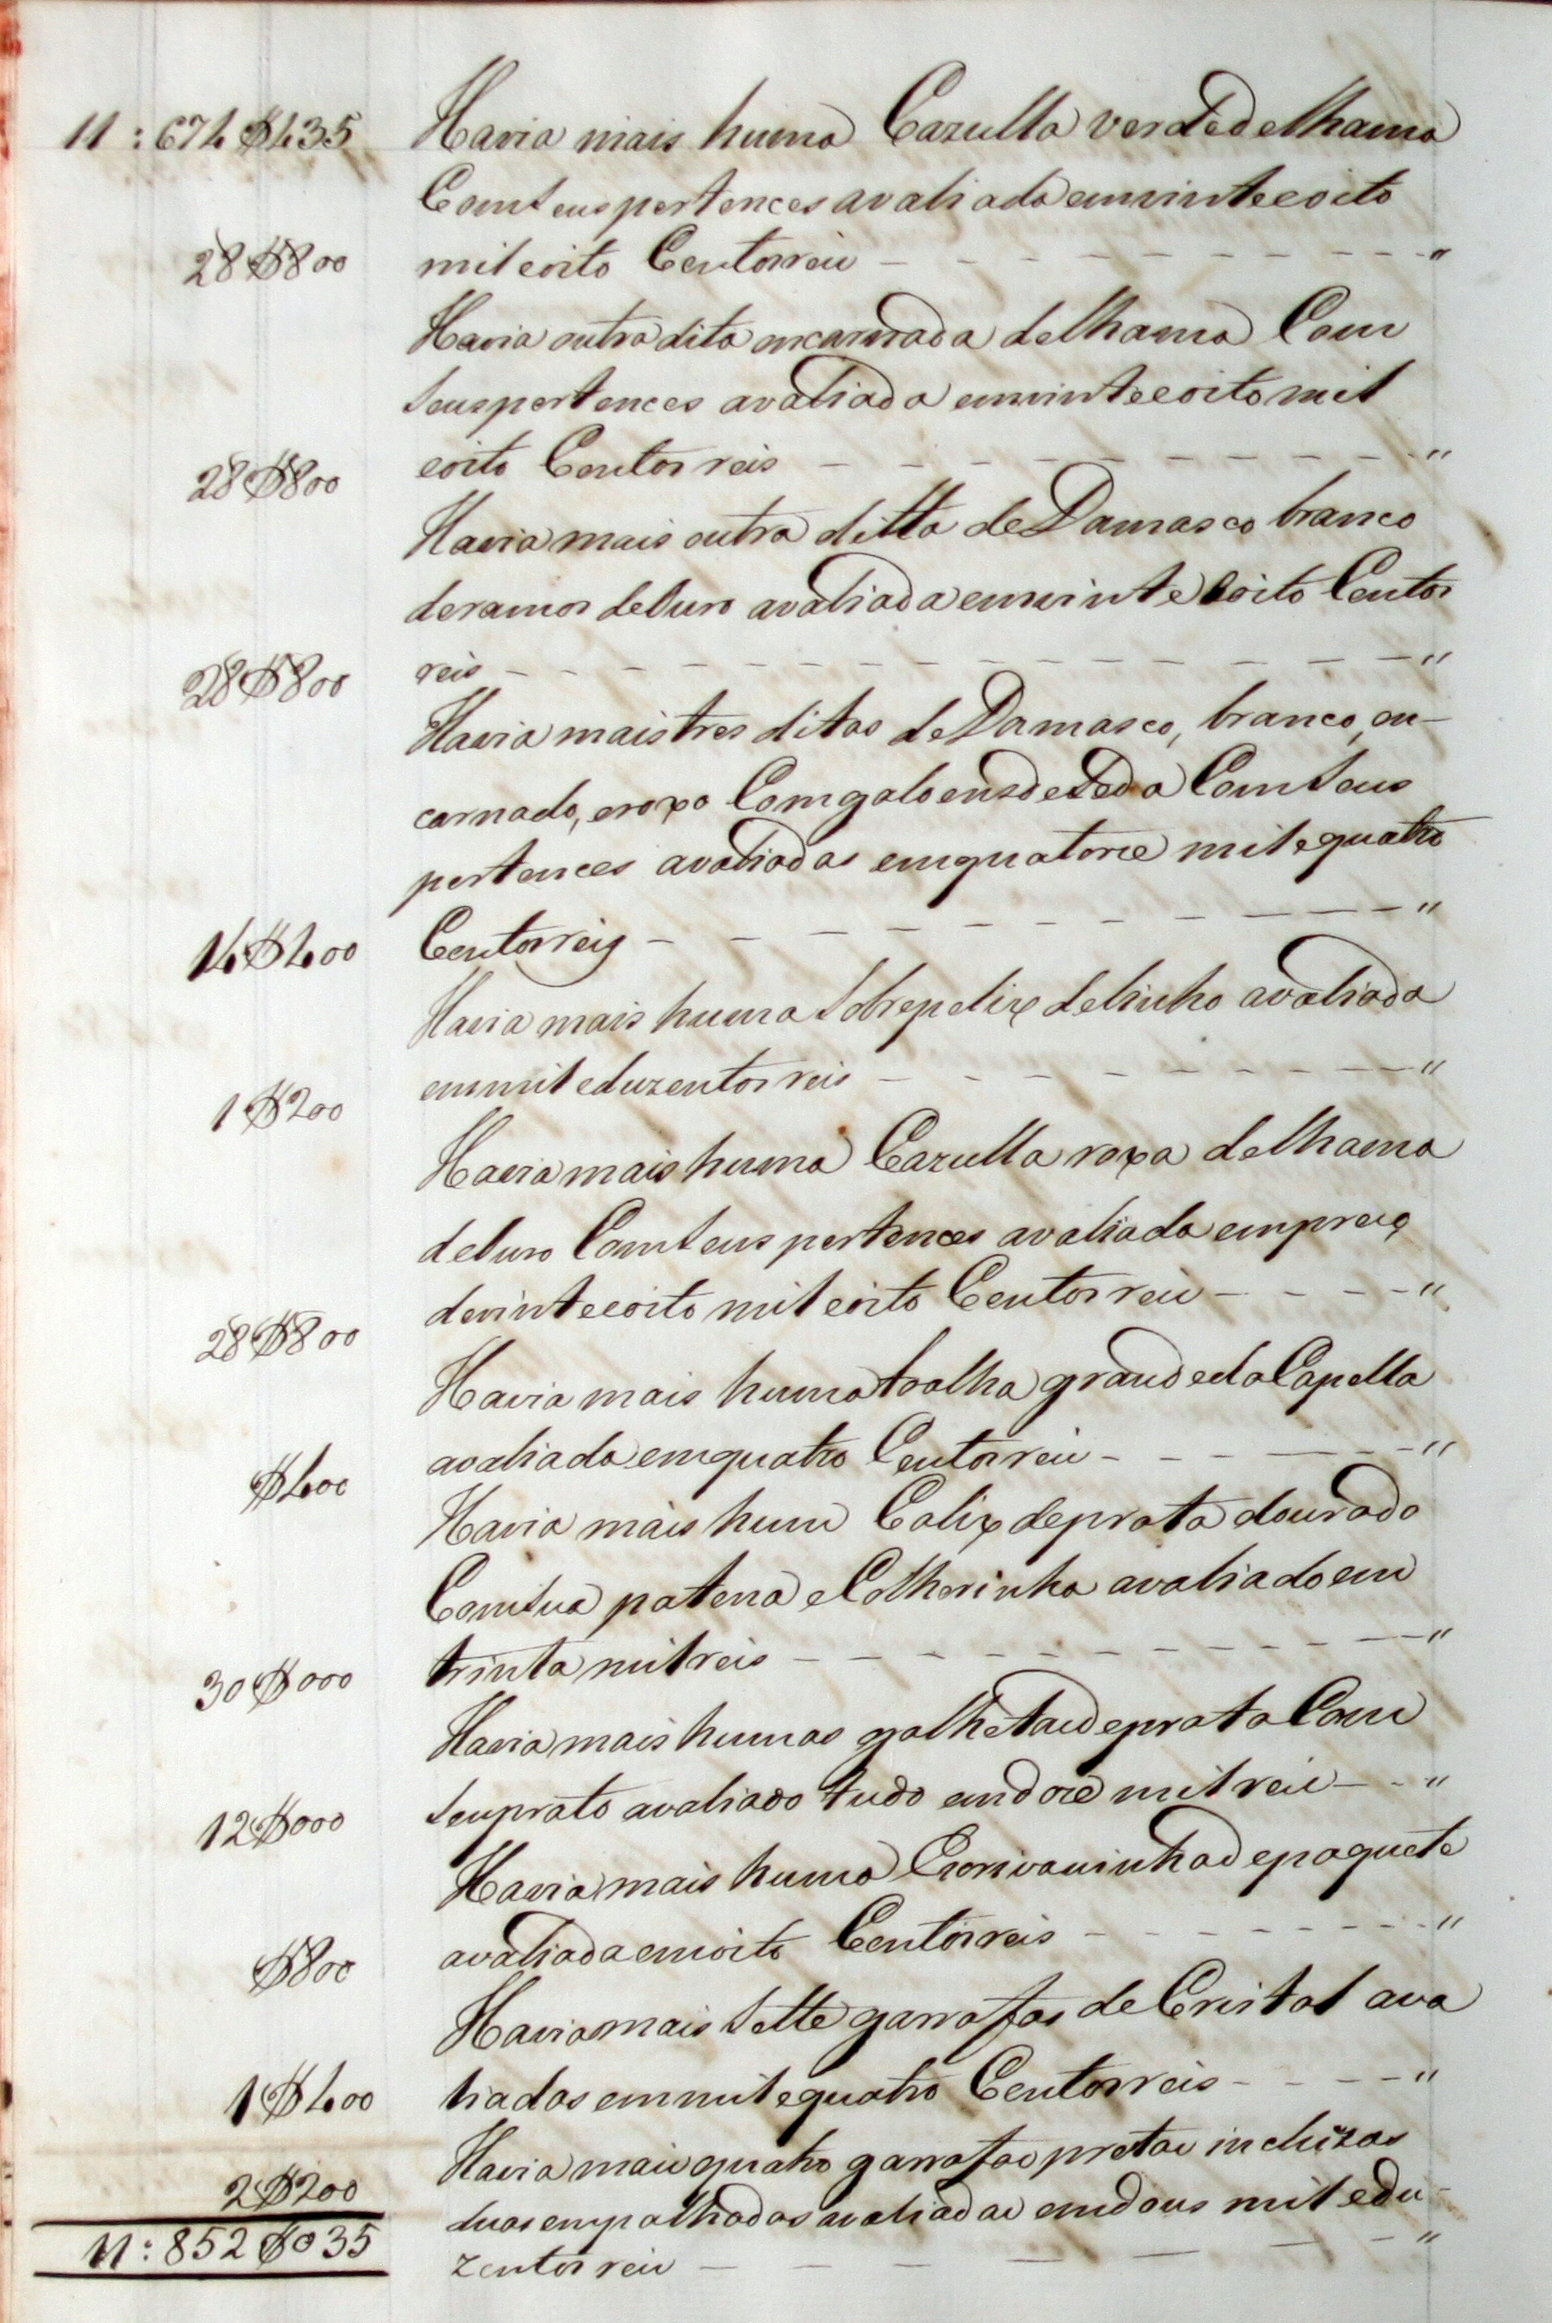 11:674$435 Havia mais huma Cazulla verde de lhama
Com seus pertences avaliada em vinte e oito
28$800 mil e oito Centos reis "
Havia outra dita encarnada de lhama Com
seus pertences avaliada em vinte e oito mil
28$800 e oito Centos reis "
Havia mais outra ditta de Damasco branco
de ramos de Ouro avaliada em vinte e oito Centos
28$800 reis "
Havia mais tres ditas de Damasco, branco, en-
carnado, e roxo Com galoens de Seda Com seus
pertences avaliadas em quatorze mil e quatro
14$400 Centos reis "
Havia mais huma sobrepelix de linho avaliada
1$200 em mil e duzentos reis "
Havia mais huma Cazulla roxa de lhama
de Ouro Com seus pertences avaliada em preço
28$800 de vinte e oito mil e oito Centos reis "
Havia mais huma toalha grande da Capella
$400 avaliada em quatro Centos reis "
Havia mais hum Calix de prata dourado
Com sua patena e Colherinha avaliado em
30$000 trinta mil reis "
Havia mais humas galhetas de prata Com
12$000 seu prato avaliado tudo em doze mil reis "
Havia mais huma Escrivaninha de paquete
$800 avaliada em oito Centos reis "
Havia mais sette garrafas de Cristal ava
1$400 liadas em mil e quatro Centos reis "
Havia mais quatro garrafas pretas incluzas
2$200 duas empalhadas avaliadas em dous mil e du-
11:852$035 zentos reis "